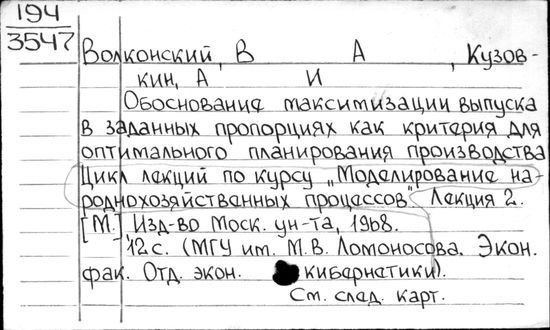 194
3547
Волконский, В А , Кузов-
кин, А И
Обоснование максимизации выпуска
в заданных пропорциях как критерия для
оптимального планирования производства
Цикл лекций по курсу „Моделирование на-
роднохозяйственных процессов". Лекция 2.
[М.] Изд-во Моск. ун-та, 1968.
12 с. (МГУ им. М.В. Ломоносова. Экон.
фак. Отд. экон. кибернетики).
См. след. карт.